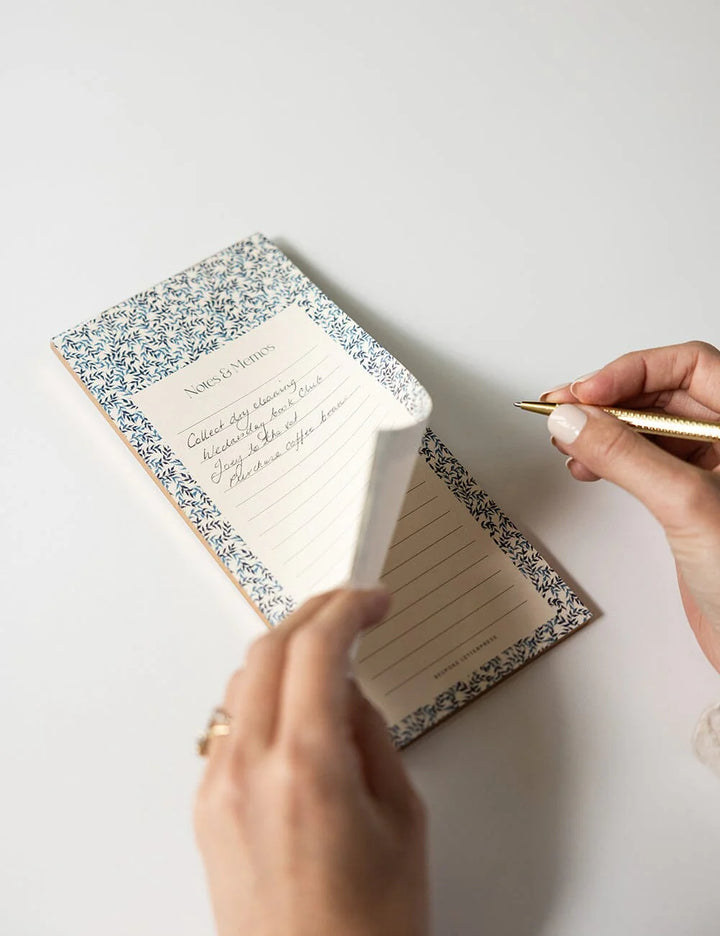 Notes & Memos
Collect dry cleaning
Wednesday book Club
Joey to the vet
Purchase Coffee beans
BESPOKE LETTERPRESS